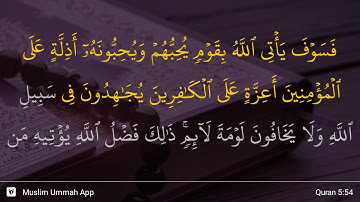 فَسَوْفَ يَأْتِى ٱللَّهُ بِقَوْمٍ يُحِبُّهُمْ وَيُحِبُّونَهُۥٓ أَذِلَّةٍ عَلَى
ٱلْمُؤْمِنِينَ أَعِزَّةٍ عَلَى ٱلْكَـٰفِرِينَ يُجَـٰهِدُونَ فِى سَبِيلِ
ٱللَّهِ وَلَا يَخَافُونَ لَوْمَةَ لَآئِمٍ ۚ ذَٰلِكَ فَضْلُ ٱللَّهِ يُؤْتِيهِ مَن
Muslim Ummah App
Quran 5:54